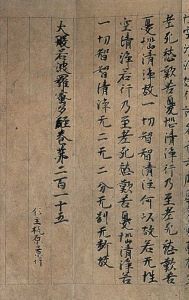 老死愁歎苦憂惱清淨行乃至老死愁歎苦
憂惱清淨故一切智智清淨何以故若无性
空清淨若行乃至老死愁歎苦憂惱清淨若
一切智智清淨无二无二分无別无斷故
大般若波羅蜜多經卷第二百一十五
仁王